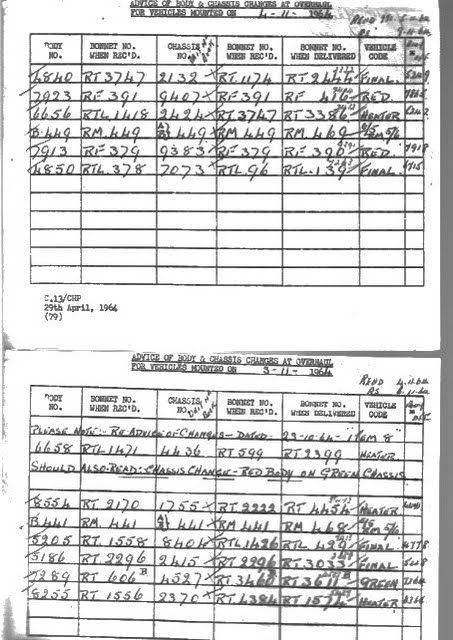 ADVICE OF BODY & CHASSIS CHANGES AT OVERHAUL
FOR VEHICLES MOUNTED ON 4-11- 1964
BODY NO. BONNET NO. WHEN REC'D. CHASSIS NO. BONNET NO. BONNET NO. WHEN DELIVERED VEHICLE CODE
4840 RT 3747 2132 RT 1174 RT 2444 FINAL
7923 RF 391 9407 RF 391 RF 416 RED
6656 RTL 1418 2424 RT 3747 RT 3386 HEATER
B 449 RM 449 449 RM 449 RM 469 RM 5/6
7913 RF 379 9383 RF 379 RF 390 RED 7918
4850 RTL 378 7073 RTL 96 RTL 139 FINAL
C.13/CHP
29th April, 1964
(79)
ADVICE OF BODY & CHASSIS CHANGES AT OVERHAUL
FOR VEHICLES MOUNTED ON 3-11- 1964
BODY NO. BONNET NO. WHEN REC'D. CHASSIS NO. BONNET NO. BONNET NO. WHEN DELIVERED VEHICLE CODE
PLEASE NOTE:- RE ADVICE OF CHANGES - DATED 29-10-64 - ITEM 8
6658 RTL 1471 4436 RT 599 RT 2399 HEATER
SHOULD ALSO READ: CHASSIS CHANGE - RED BODY ON GREEN CHASSIS
8554 RT 2170 1755 RT 2222 RT 4454 HEATER
B 441 RM 441 441 RM 441 RM 468 RM 5/6
5205 RT 1558 8404 RTL 1426 RTL 429 FINAL
5186 RT 2296 2415 RT 2296 RT 3033 FINAL
7289 RT 606 B 4527 RT 3460 RT 3611 GREEN
8255 RT 1556 2370 RT 4384 RT 1574 HEATER